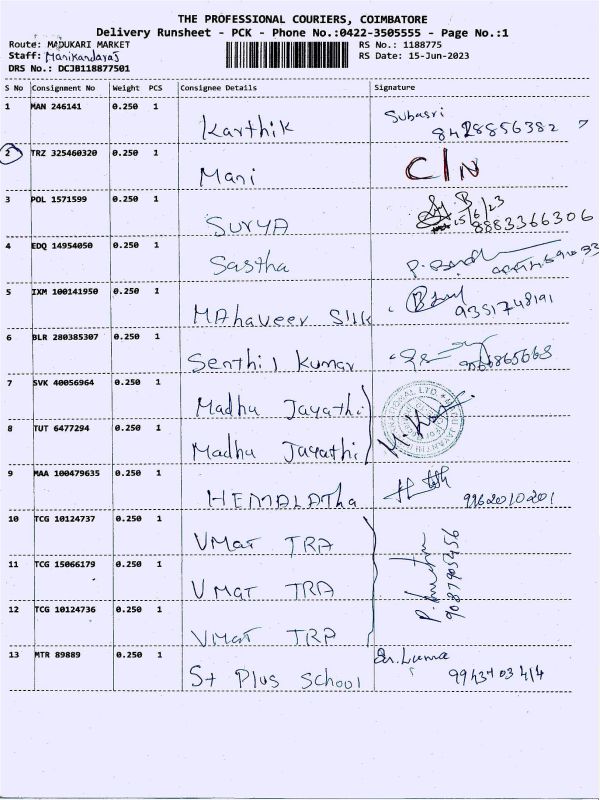 THE PROFESSIONAL COURIERS, COIMBATORE
Delivery Runsheet - PCK - Phone No.:0422-3505555 - Page No.:1
Route: MADUKARI MARKET RS No.: 1188775
Staff: Manikandaraj RS Date: 15-Jun-2023
DRS No.: DCJB118877501
S No Consignment No Weight PCS Consignee Details Signature
1 MAN 246141 0.250 1 Karthik Subasri
8428856382
2 TRZ 325460320 0.250 1 Mani C/N
3 POL 1571599 0.250 1 SURYA 15/6/23
8883366306
4 EDQ 14954050 0.250 1 Sastha
5 IXM 100141950 0.250 1 MAhaveer Silk 9351748191
6 BLR 280385307 0.250 1 Senthil Kumar
7 SVK 40056964 0.250 1 Madhu Jayathi
8 TUT 6477294 0.250 1 Madhu Jayathi
9 MAA 100479635 0.250 1 HEMALATha 9962010201
10 TCG 10124737 0.250 1 VMat TRA
11 TCG 15066179 0.250 1 VMat TRA 9087905456
12 TCG 10124736 0.250 1 VMat TRP
13 MTR 89889 0.250 1 St Plus School